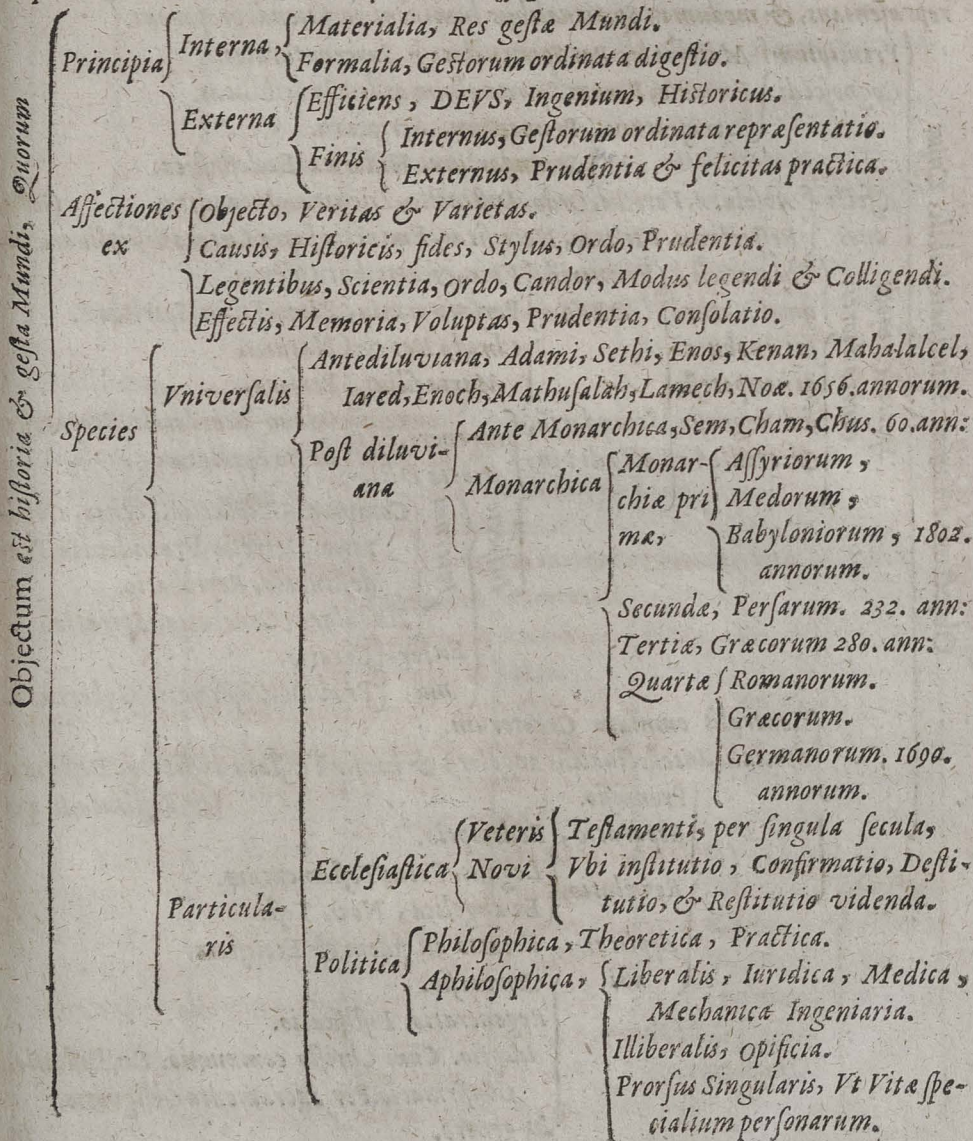 Objectum est historia & gesta Mundi, Quorum
Principia
Interna,
Materialia, Res gestæ Mundi.
Formalia, Gestorum ordinata digestio.
Externa
Efficiens, DEVS, Ingenium, Historicus.
Finis
Internus, Gestorum ordinata repræsentatio.
Externus, Prudentia & felicitas practica.
Affectiones
ex
Objecto, Veritas & Varietas.
Causis, Historicis, fides, Stylus, Ordo, Prudentia.
Legentibus, Scientia, Ordo, Candor, Modus legendi & Colligendi.
Effectis, Memoria, Voluptas, Prudentia, Consolatio.
Species
Vniversalis
Antediluviana, Adami, Sethi, Enos, Kenan, Mahalalcel,
Iared, Enoch, Mathusalah, Lamech, Noæ. 1656. annorum.
Post diluvi-
ana
Ante Monarchica, Sem, Cham, Chus. 60. ann:
Monarchica
Monar-
chiæ pri
mæ,
Assyriorum,
Medorum,
Babyloniorum, 1802.
annorum.
Secundæ, Persarum. 232. ann:
Tertiæ, Græcorum 280. ann:
Quartæ
Romanorum.
Græcorum.
Germanorum. 1690.
annorum.
Particula-
ris
Ecclesiastica
Veteris
Novi
Testamenti, per singula secula,
Vbi institutio, Confirmatio, Desti-
tutio, & Restitutio videnda.
Politica
Philosophica, Theoretica, Practica.
Aphilosophica,
Liberalis, Iuridica, Medica,
Mechanica Ingeniaria.
Illiberalis, Opificia.
Prorsus Singularis, Vt Vitæ spe-
cialium personarum.